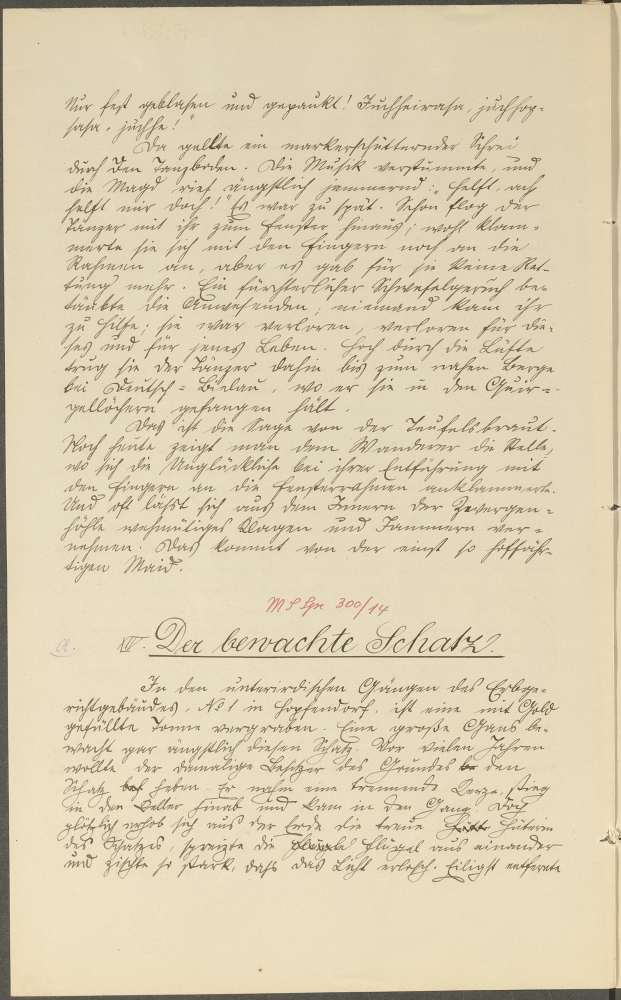 Nur fest geblasen und gepaukt! Juchheirasa, juchhop-
sasa, juchhe!"
Da gellte ein markerschütternder Schrei
durch den Tanzboden. Die Musik verstummte, und
die Magd rief ängstlich jammernd: „Helft, ach
helft mir doch!" Es war zu spät. Schon flog der
Tänzer mit ihr zum Fenster hinaus; wohl klam-
merte sie sich mit den Fingern noch an die
Rahmen an, aber es gab für sie keine Ret-
tung mehr. Ein fürchterlicher Schwefelgeruch be-
täubte die Anwesenden; niemand kam ihr
zu Hilfe; sie war verloren, verloren für die-
ses und für jenes Leben. Hoch durch die Lüfte
trug sie der Tänzer dahin bis zum nahen Berge
bei Deutsch-Bielau, wo er sie in den Quir-
gellöchern gefangen hält.
Das ist die Sage von der Teufelsbraut.
Noch heute zeigt man dem Wanderer die Stelle,
wo sich die Unglückliche bei ihrer Entführung mit
den Fingern an die Fensterrahmen anklammerte.
Und oft lässt sich aus dem Innern der Zwergen-
höhle wehmütiges Klagen und Jammern ver-
nehmen. Das kommt von der einst so hoffähr-
tigen Maid.
300/14
a. IV. Der bewachte Schatz.
In den unterirdischen Gängen des Erbge-
richtgebäudes, No 1 in Hopfendorf, ist eine mit Gold
gefüllte Tonne vergraben. Eine große Gans be-
wacht gar ängstlich diesen Schatz. Vor vielen Jahren
wollte der damalige Besitzer des Grundes den
Schatz heben. Er nahm eine brennende Kerze, stieg
in den Keller hinab und kam in den Gang. Doch
plötzlich erhob sich aus der Erde die treue Hüterin
des Schatzes, spreizte die Flügel aus einander
und zischte so stark, dass das Licht erlosch. Eiligst entfernte